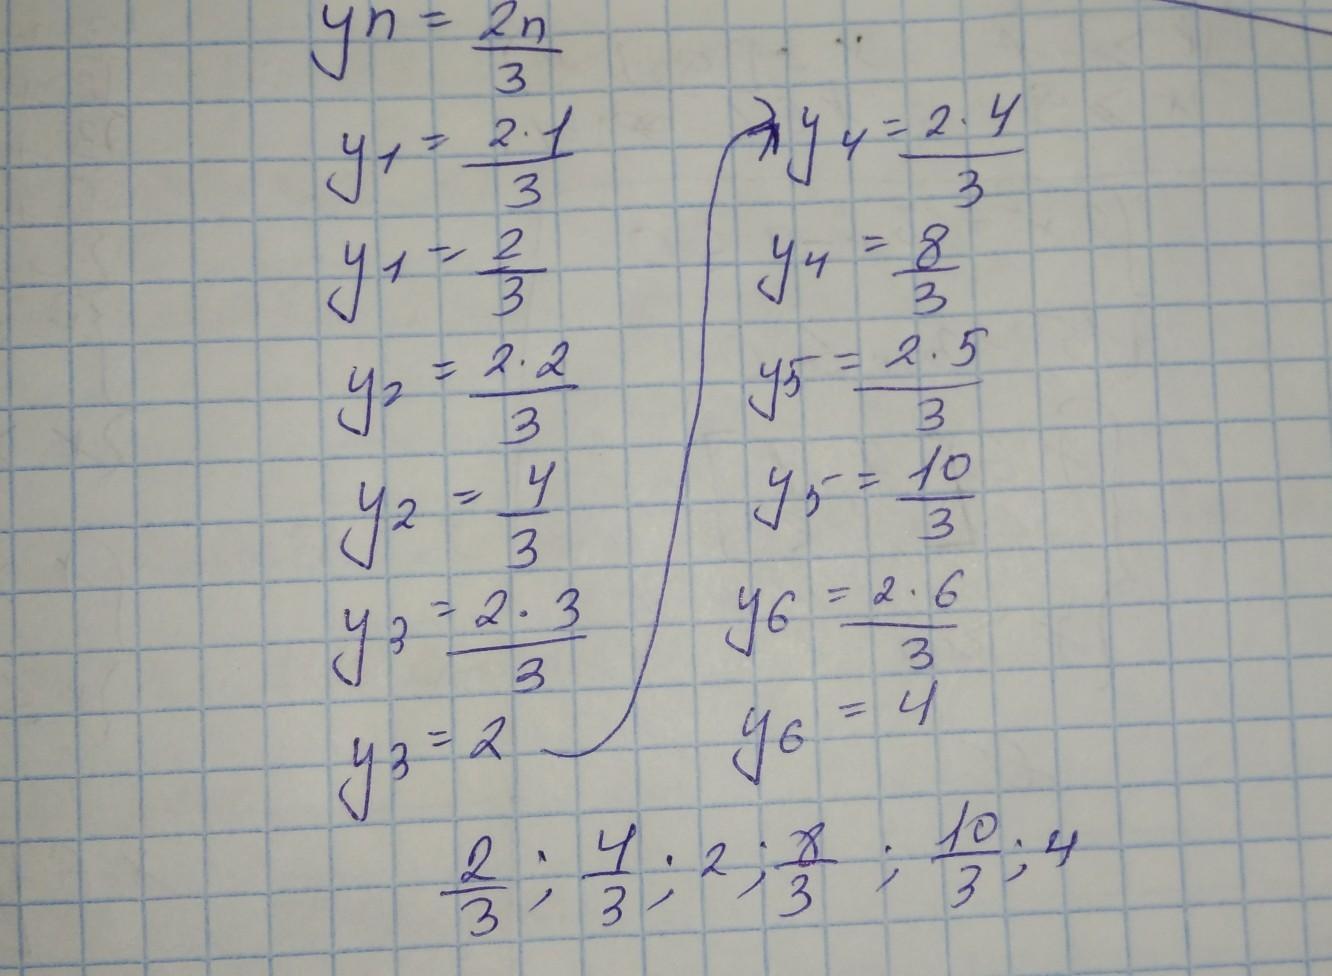 yn = 2n/3
y1 = 2·1/3
y1 = 2/3
y2 = 2·2/3
y2 = 4/3
y3 = 2·3/3
y3 = 2
y4 = 2·4/3
y4 = 8/3
y5 = 2·5/3
y5 = 10/3
y6 = 2·6/3
y6 = 4
2/3 ; 4/3 ; 2 ; 8/3 ; 10/3 ; 4